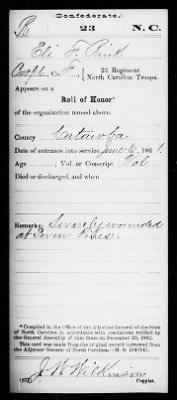 Confederate.
R 23 N. C.
Eli F. Rink
Corp'l, Co. F, 23 Regiment
North Carolina Troops.
Appears on a
Roll of Honor*
of the organization named above.
County Catawba
Date of entrance into service June 6, 1861.
Age ; Vol. or Conscript Vol
Died or discharged, and when
Remarks: Severely wounded
at Seven Pines.
*Compiled in the Office of the Adjutant General of the State
of North Carolina in accordance with resolutions ratified by
the General Assembly of that State on
This card was made from the original record borrowed from
the Adjutant General of North Carolina.
J. W. Wilkinson
Copyist.